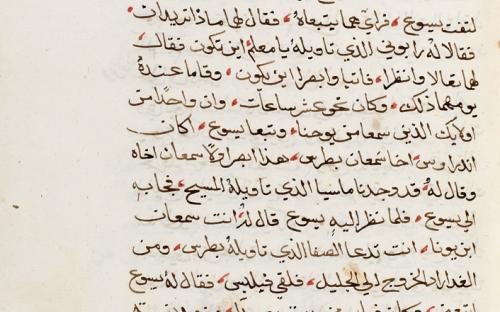 لتفت يسوع فراي هما يتبعاه فقال لهما ماذا تريدان
فقالا له رابوني الذي تاويله يا معلم اين تكون فقال
لهما تعالا وانظرا فاتيا وابصرا اين يكون وقاما عنده
يومهما ذلك وكان نحو عشر ساعات وان واحدا من
اوليك الذين سمعا من يوحنا وتبعا يسوع كان
اندراوس اخا سمعان بطرس هذا ابصر اولا سمعان اخاه
وقال له قد وجدنا ماسيا الذي تاويله المسيح فجا به
الي يسوع فلما نظر اليه يسوع قال له انت سمعان
ابن يونا انت تدعا الصفا الذي تاويله بطرس ومن
الغد اراد الخروج الي الجليل فلقي فيلبس فقال له يسوع